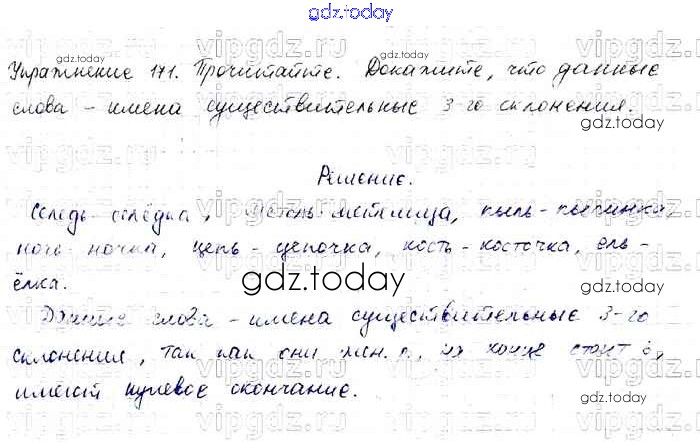 gdz.today
Упражнение 171. Прочитайте. Докажите, что данные
gdz.today
слова - имена существительные 3-го склонения.
gdz.today
Решение.
Сельдь - селёдка, метель - метелица, пыль - пылинка,
ночь - ночка, цепь - цепочка, кость - косточка, ель -
ёлка.
gdz.today
Данные слова - имена существительные 3-го
склонения, так как они жен. р., на конце стоит ь,
имеют нулевое окончание.
gdz.today
vipgdz.ru